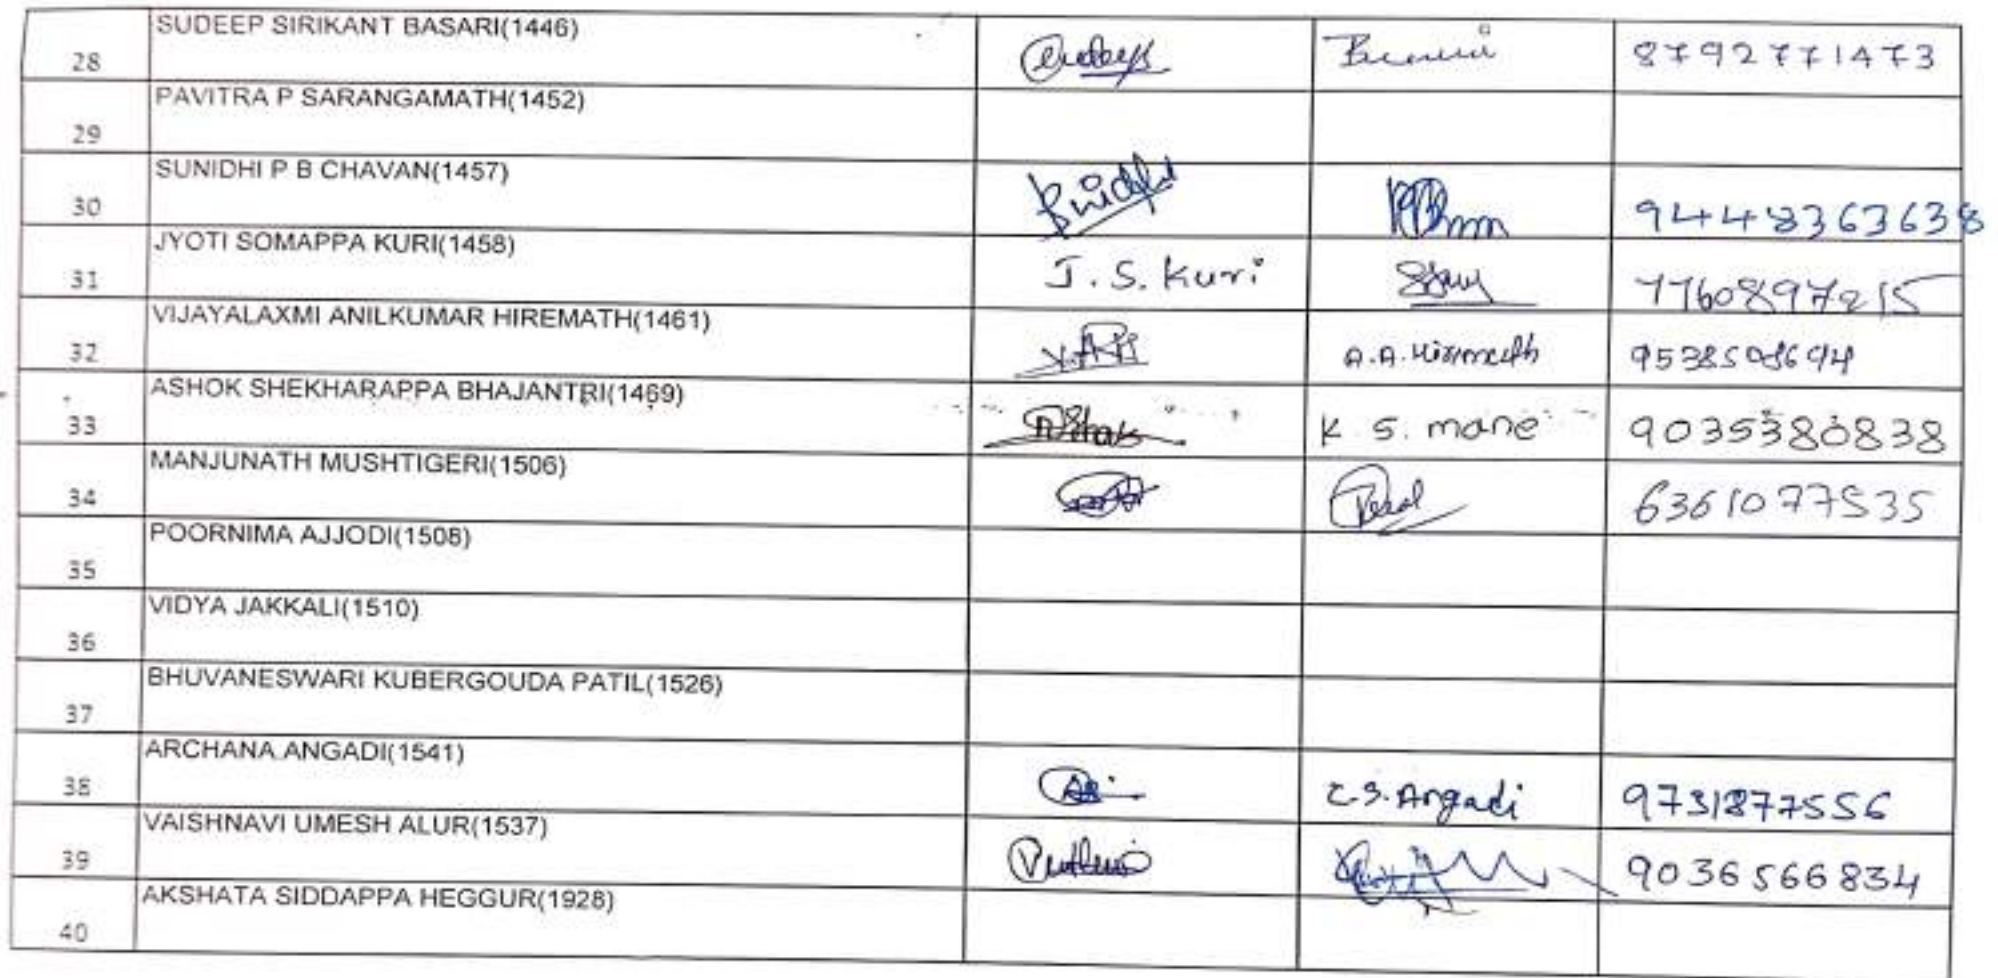 SUDEEP SIRIKANT BASARI(1446)
28 8792771473
PAVITRA P SARANGAMATH(1452)
29
SUNIDHI P B CHAVAN(1457)
30 9448363638
JYOTI SOMAPPA KURI(1458)
31 J.S. Kuri 7760897215
VIJAYALAXMI ANILKUMAR HIREMATH(1461)
32 A.A. Hiremath
ASHOK SHEKHARAPPA BHAJANTRI(1469)
33 K S. mane 9035380838
MANJUNATH MUSHTIGERI(1506)
34 6361077535
POORNIMA AJJODI(1508)
35
VIDYA JAKKALI(1510)
36
BHUVANESWARI KUBERGOUDA PATIL(1526)
37
ARCHANA.ANGADI(1541)
38 C.S. Angadi 9731877556
VAISHNAVI UMESH ALUR(1537)
39 9036566834
AKSHATA SIDDAPPA HEGGUR(1928)
40